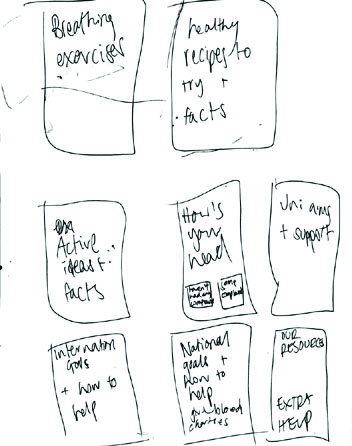 Breathing
exercises
healthy
recipes to
try +
facts
Active
ideas +
facts
How's
your
head
Uni aims
+ support
Internation
Goals
+ how to
help
National
goals +
how to
help
give blood
charities
OUR
RESOURCES
EXTRA
HELP